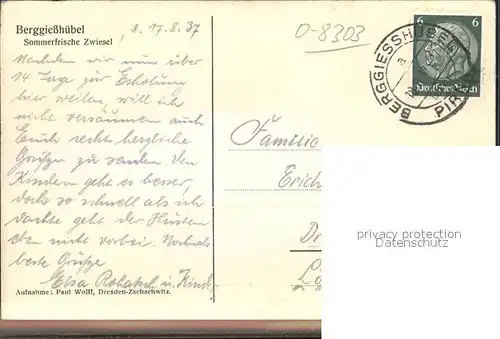 Berggießhübel
Sommerfrische Zwiesel
d. 17.8.37
O-8303
6 6
Deutsches Reich
BERGGIESSHÜBEL
PIR
Nachdem wir nun über
14 Tage zur Erholung
hier weilen, will ich
nicht versäumen auch
Euch recht herzliche
Grüße zu senden. Den
Kindern geht es besser,
doch so schnell als ich
dachte geht der Husten
eben nicht vorbei. Nochmals
beste Grüße
Elsa Rohatsch u. Kinder
Familie
Erich
Dr
Aufnahme: Paul Wolff, Dresden-Zschachwitz.
privacy protection
Datenschutz